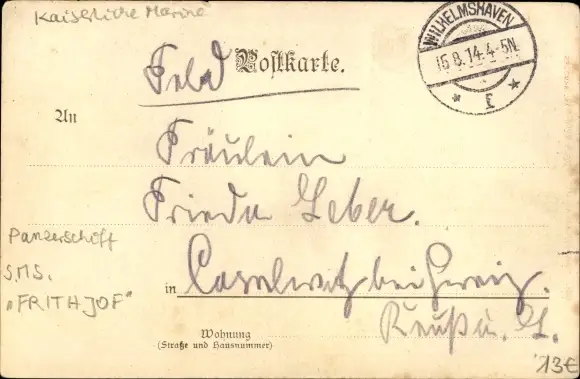 Kaiserliche Marine
WILHELMSHAVEN
15.8.14.4-5N.
* f *
Feld Postkarte.
An
Fräulein
Frieda Geber.
Panzerschiff
S.M.S.
"FRITHJOF"
in Caselwitz bei Greiz.
Reuß ä. L.
Wohnung
(Straße und Hausnummer)
13€